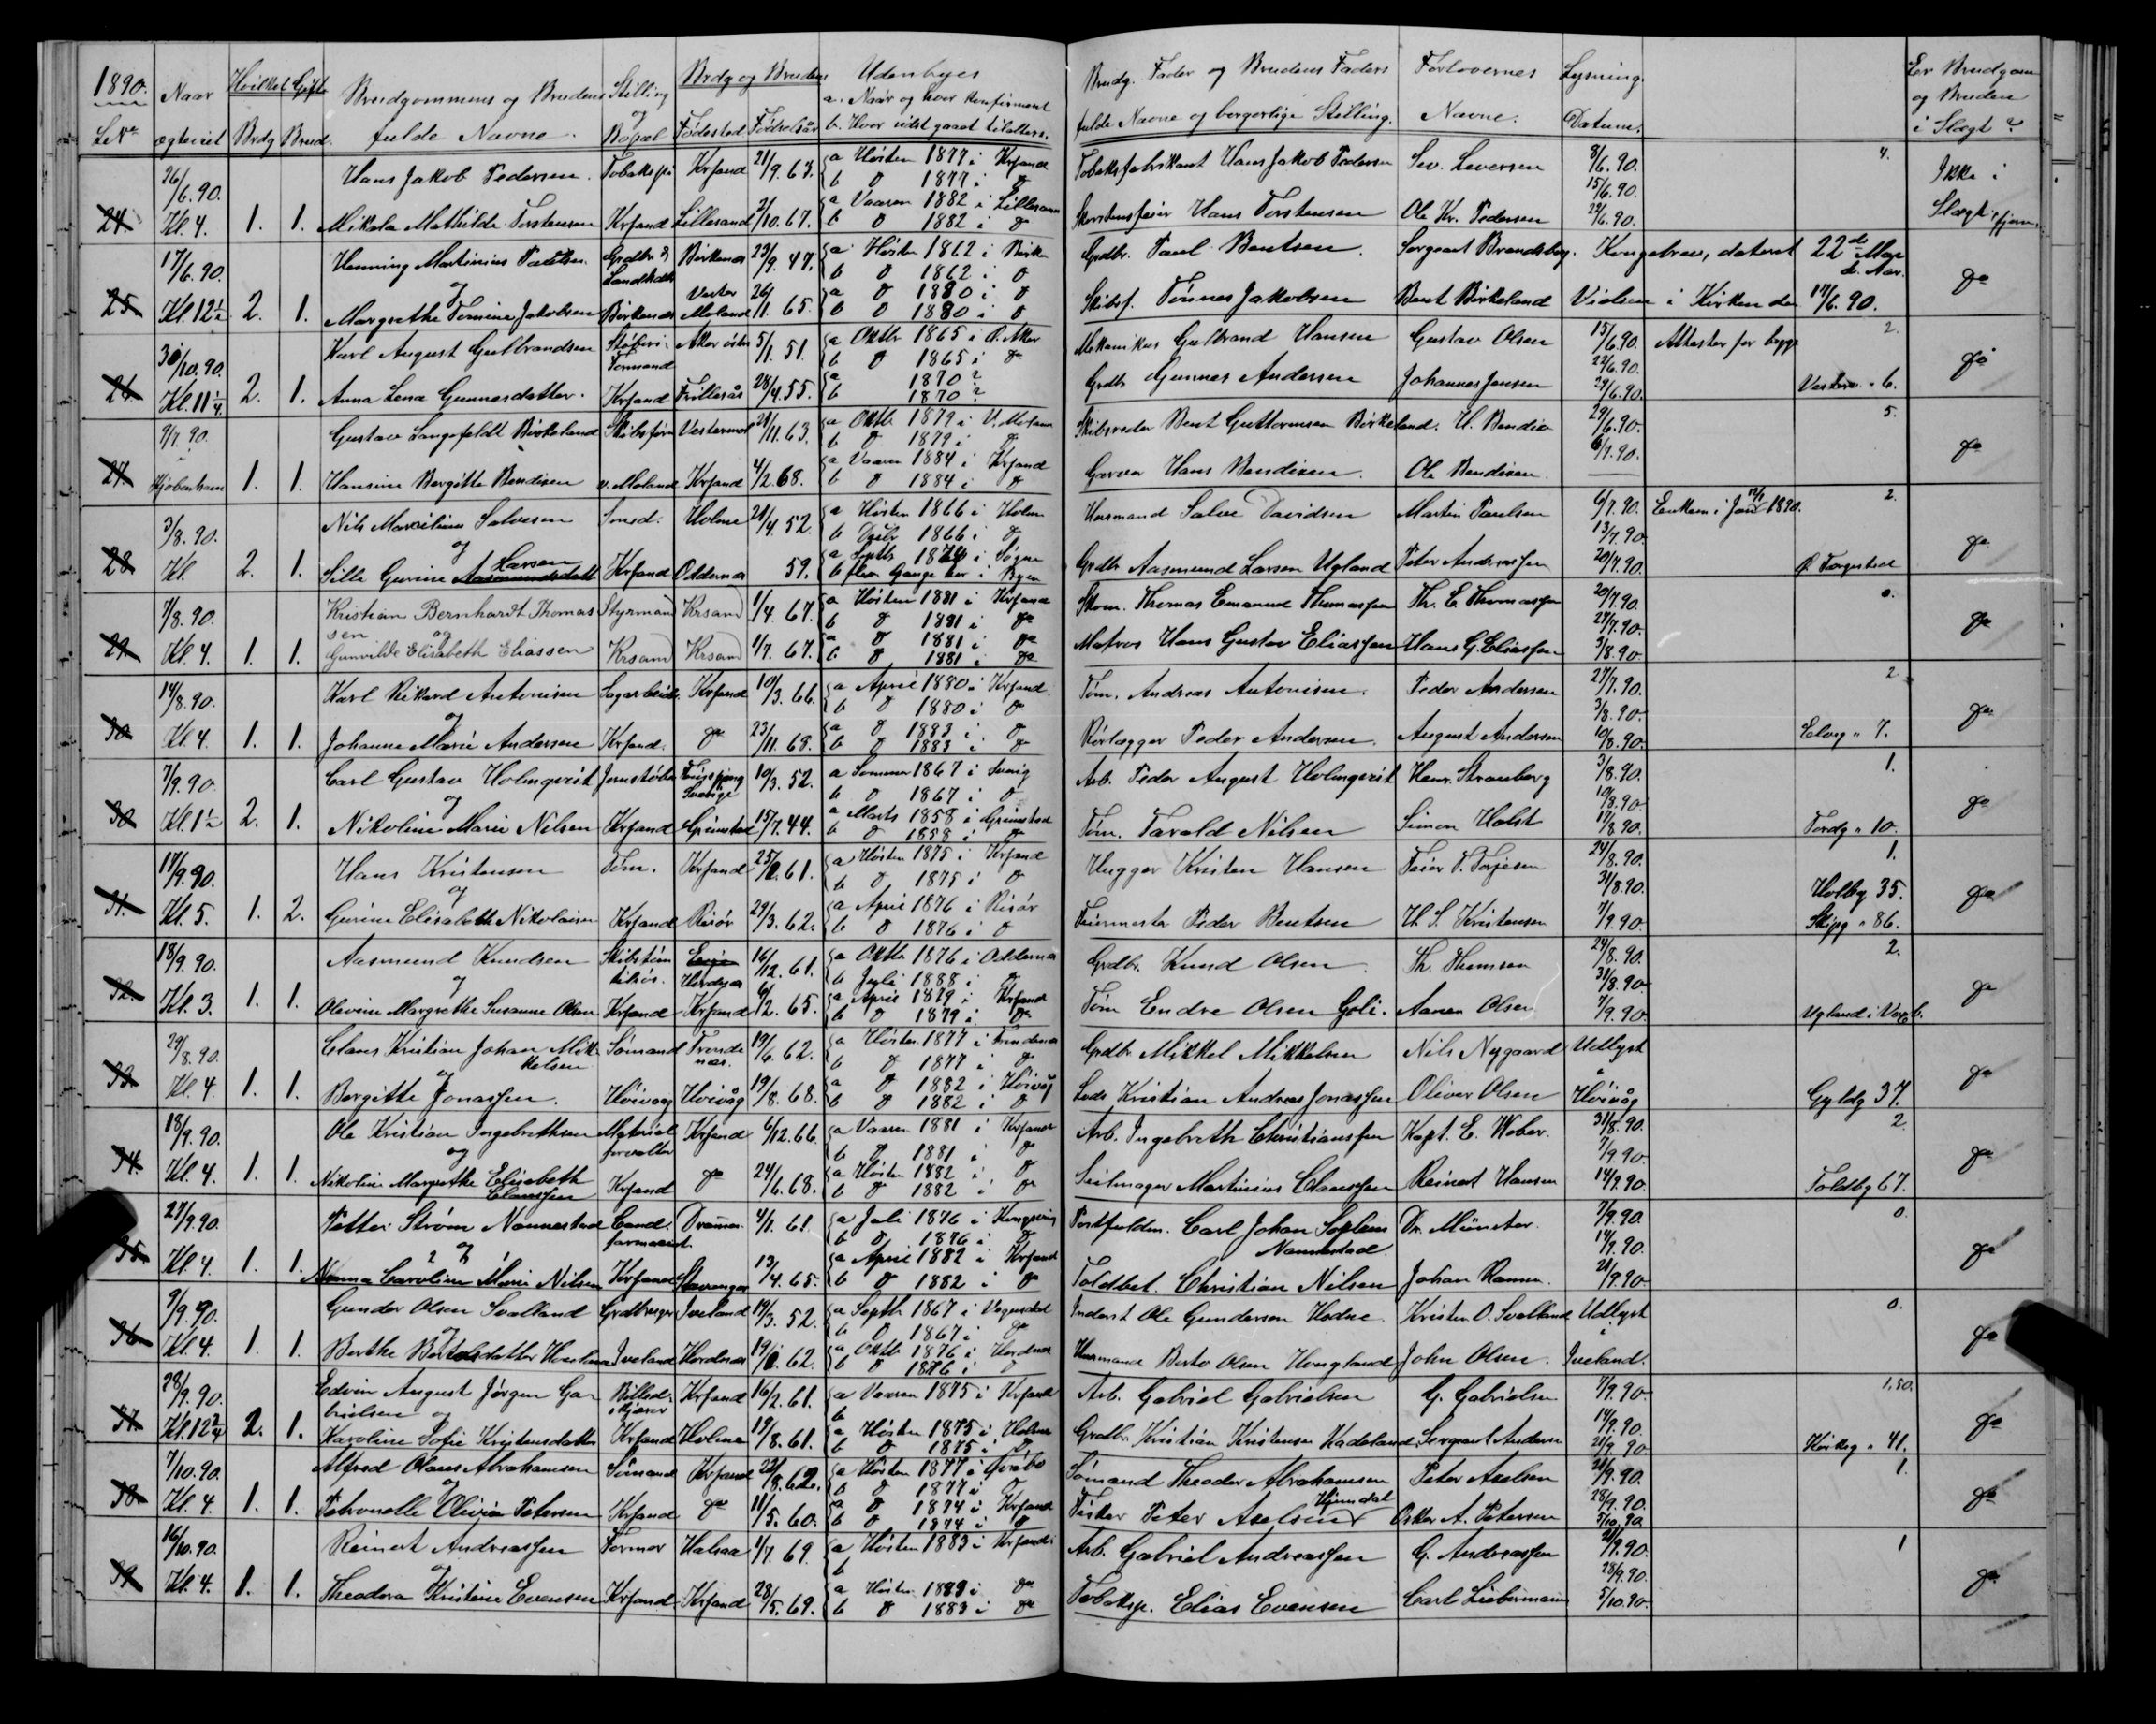 1890. Naar Hvilket Gifte Brudgommens og Brudens Stilling Brdg og Brudens Udenbyes Brudg. Fader og Brudens Faders Forlovernes Lysning. Er Brudgom
og a. Naar og hvor Konfirmeret og Bruden
LNo ægteviet Brdg Brud. fulde Navne. Bopæl Fødested Fødselsår b. Hvor sidst gaaet tilalters. fulde Navne og borgerlige Stilling. Navne. Datum. i Slægt?
26/6.90. Hans Jakob Pedersen. Krsand 21/9.63. a Høsten 1877 i Krsand Tobaksfabrikant Hans Jakob Pedersen Sev. Seversen 8/6.90. 4. Ikke i
b do 1877 i do 15/6.90. Slægt
24. Kl. 4. 1. 1. Mikala Mathilde Torstensen Krsand Lillesand 2/10.67. a Vaaren 1882 i Lillesand Skorstensfeier Hans Torstensen Ole Kr. Pedersen 22/6.90.
b do 1882 i do
17/6.90. Henning Martinius Paulsen Grdbr. & Landhdl. Birkenes 23/9.47. a Høsten 1862 i Birken Grdbr. Paul Bentsen. Sergeant Brandsberg. Kongebrev, dateret 22de Mai d. Aar. do
og b do 1862 i do
25. Kl. 12½ 2. 1. Margrethe Tomine Jakobsen Birkenes Vester Moland 26/11.65. a do 1880 i do Skibsf. Tønnes Jakobsen Bent Birkeland Vielsen i Kirken den 17/6.90.
b do 1880 i do
30/10.90. Karl August Gulbrandsen Støberi-Formand Aker 5/1.51. a Oktbr 1865 i Ø. Aker Mekanikus Gulbrand Hansen Gustav Olsen 15/6.90. Attester for begge 2. do
b do 1865 i do 22/6.90.
26. Kl. 11¼ 2. 1. Anna Lena Gunnesdatter. Krsand Frillesås 28/4.55. a 1870? Grdbr Gunnes Andersen Johannes Jensen 29/6.90. 6.
b 1870?
9/7.90. Gustav Langfeldt Birkeland Skibsfører Vestermol 21/11.63. a Oktb 1879 i V. Moland Skibsreder Bent Guttormsen Birkeland. H. Bendix 29/6.90. 5. do
i b do 1879 i do 6/7.90.
27. Kjøbenhavn 1. 1. Hansine Bergitte Bendixen v. Moland Krsand 4/2.68. a Vaaren 1884 i Krsand Garver Hans Bendixen. Ole Bendixen.
b do 1884 i do
3/8.90. Nils Maxilius Salvesen Smed. Holme 21/4.52. a Høsten 1866 i Holm Husmand Salve Davidsen Martin Paulsen 6/7.90. Enkem. i Jan 1890. 2. do
og b Decbr 1866 i do 13/7.90.
28. Kl. 2. 1. Sille Gurine Aasmundsdatt Larsen Krsand Oddernes 59. a Septb 1874 i Søgne Grdbr Aasmund Larsen Ugland Peter Andreassen 20/7.90.
b flere Gange her i Byen
7/8.90. Kristian Bernhardt Thomassen Styrmand Krsand 1/4.67. a Høsten 1881 i Krsand Skom. Thomas Emanuel Thomassen Th. E. Thomassen 20/7.90. 0. do
og b do 1881 i do 27/7.90.
29. Kl. 4. 1. 1. Gunvilde Elisabeth Eliassen Krsand Krsand 1/7.67. a do 1881 i do Matros Hans Gustav Eliassen Hans G. Eliassen 3/8.90.
b do 1881 i do
14/8.90. Karl Rikard Antonisen Sagarbeid. Krsand 10/3.66. a April 1880 i Krsand. Tøm. Andreas Antonisen. Peder Andersen 27/7.90. 2. do
og b do 1880 i do 3/8.90.
30. Kl. 4. 1. 1. Johanne Marie Andersen Krsand. do 23/11.68. a do 1883 i do Rørlægger Peder Andersen. August Andersen 10/8.90. Elvg " 7.
b do 1883 i do
7/9.90 Carl Gustav Holmqvist Jernstøber Sverige 10/3.52. a Sommer 1867 i Sverig Arb. Peder August Holmqvist Henr. Stranberg 3/8.90. 1. do
og b do 1867 i do 10/8.90.
30. Kl. 1½ 2. 1. Nikoline Marie Nilsen Krsand Grimstad 15/7.44. a Marts 1858 i Grimstad Tøm. Tarald Nilsen Simon Holst 17/8.90. Tordg " 10.
b do 1858 i do
14/9.90. Hans Kristensen Tøm. Krsand 61. a Høsten 1875 i Krsand Hugger Kristen Hansen Feier T. Torjesen 24/8.90. 1. do
og b do 1875 i do 31/8.90. Holbg 35.
31. Kl. 5. 1. 2. Gurine Elisabeth Nikolaisen Krsand Risør 29/3.62. a April 1876 i Risør Feiermester Peder Bentsen H. S. Kristensen 7/9.90. Skipg " 86.
b do 1876 i do
18/9.90. Aasmund Knudsen Skibstøm Evje 16/12.61. a Oktb 1876 i Oddernes Grdbr. Knud Olsen Th. Thomsen 24/8.90. 2. do
og Hordnes b Juli 1888 i do 31/8.90.
32. Kl. 3. 1. 1. Olevine Margrethe Susanne Olsen Krsand Krsand 6/2.65. a April 1879 i Krsand Tøm Endre Olsen Goli. Aanen Olsen 7/9.90. Ugland i
b do 1879 i do
29/8.90. Claus Kristian Johan Mikkelsen Sømand Tromønes. 19/6.62. a Høsten 1877 i Grdbr. Mikkel Mikkelsen Nils Nygaard Udlyst do
og b do 1877 i do i
33. Kl. 4. 1. 1. Bergitte Jonassen. Høivåg Høivåg 19/8.68. a do 1882 i Høivåg Lods Kristian Andreas Jonassen Oliver Olsen Høivåg Gyldg 37.
b do 1882 i do
18/9.90. Ole Kristian Ingebrethsen Materialforvalter Krsand 6/12.66. a Vaaren 1881 i Krsand Arb. Ingebreth Christianssen Kapt. E. Weber. 31/8.90. 2. do
og b do 1881 i do 7/9.90.
34. Kl. 4. 1. 1. Nikoline Margrethe Elisabeth Claussen Krsand do 24/6.68. a Høsten 1882 i do Seilmager Martinius Claussen Reinert Hansen 14/9.90. Toldbg 67.
b do 1882 i do
27/9.90. Petter Strøm Nannestad Cand. farmacist. Drammen 4/1.61. a Juli 1876 i Kongsving Postfuldm. Carl Johan Sophus Nannestad. Dr. Münster. 7/9.90. 0. do
og b do 1876 i do 14/9.90.
35. Kl. 4. 1. 1. Nanna Caroline Marie Nilsen Krsand Stavanger 13/4.65. a April 1882 i Krsand Toldbet. Christian Nilsen Johan Ramm. 21/9.90
b do 1882 i do
9/9.90. Gunder Olsen Svalland Grdbruger Iveland 19/3.52. a Septb 1867 i Vegusdal Inderst Ole Gundersen Hodne Kristen O. Svalland Udlyst 0. do
og b do 1867 i do i
36. Kl. 4. 1. 1. Berthe Iveland Hordnes 62. a Oktb 1876 i Hordnes Husmand Berto Olsen Hougland John Olsen. Iveland.
b do 1876 i do
28/9.90. Edvin August Jørgen Gabrielsen Billedskjærer Krsand 16/2.61. a Vaaren 1875 i Krsand Arb. Gabriel Gabrielsen G. Gabrielsen 7/9.90 1,50. do
og b 14/9.90.
37. Kl. 12¾ 2. 1. Karoline Sofie Kristensdatter Krsand Holme 19/8.61. a Høsten 1875 i Holme Grdbr. Kristian Kristensen Kadeland Sergeant Andersen 21/9.90 41.
b do 1875 i do
7/10.90. Alfred Olaus Abrahamsen Sømand Krsand 22/8.62. a Høsten 1877 i Sømand Theodor Abrahamsen Peter Axelsen 21/9.90. 1. do
og b do 1877 i do 28/9.90.
38. Kl. 4. 1. 1. Petronelle Olivia Petersen Krsand do 11/5.60. a do 1874 i Krsand Fisker Peter Axelsen Oskar A. Petersen 5/10.90.
b do 1874 i do
16/10.90. Reinert Andreassen Former Halsaa 1/7.69. a Høsten 1883 i Krsand Arb. Gabriel Andreassen G. Andreassen 21/9.90. 1 do
og b 28/9.90.
39. Kl. 4. 1. 1. Theodora Kristine Evensen Krsand Krsand 28/5.69. a Høsten 1883 i do Tobaksp. Elias Evensen Carl Liebermann 5/10.90.
b do 1883 i do